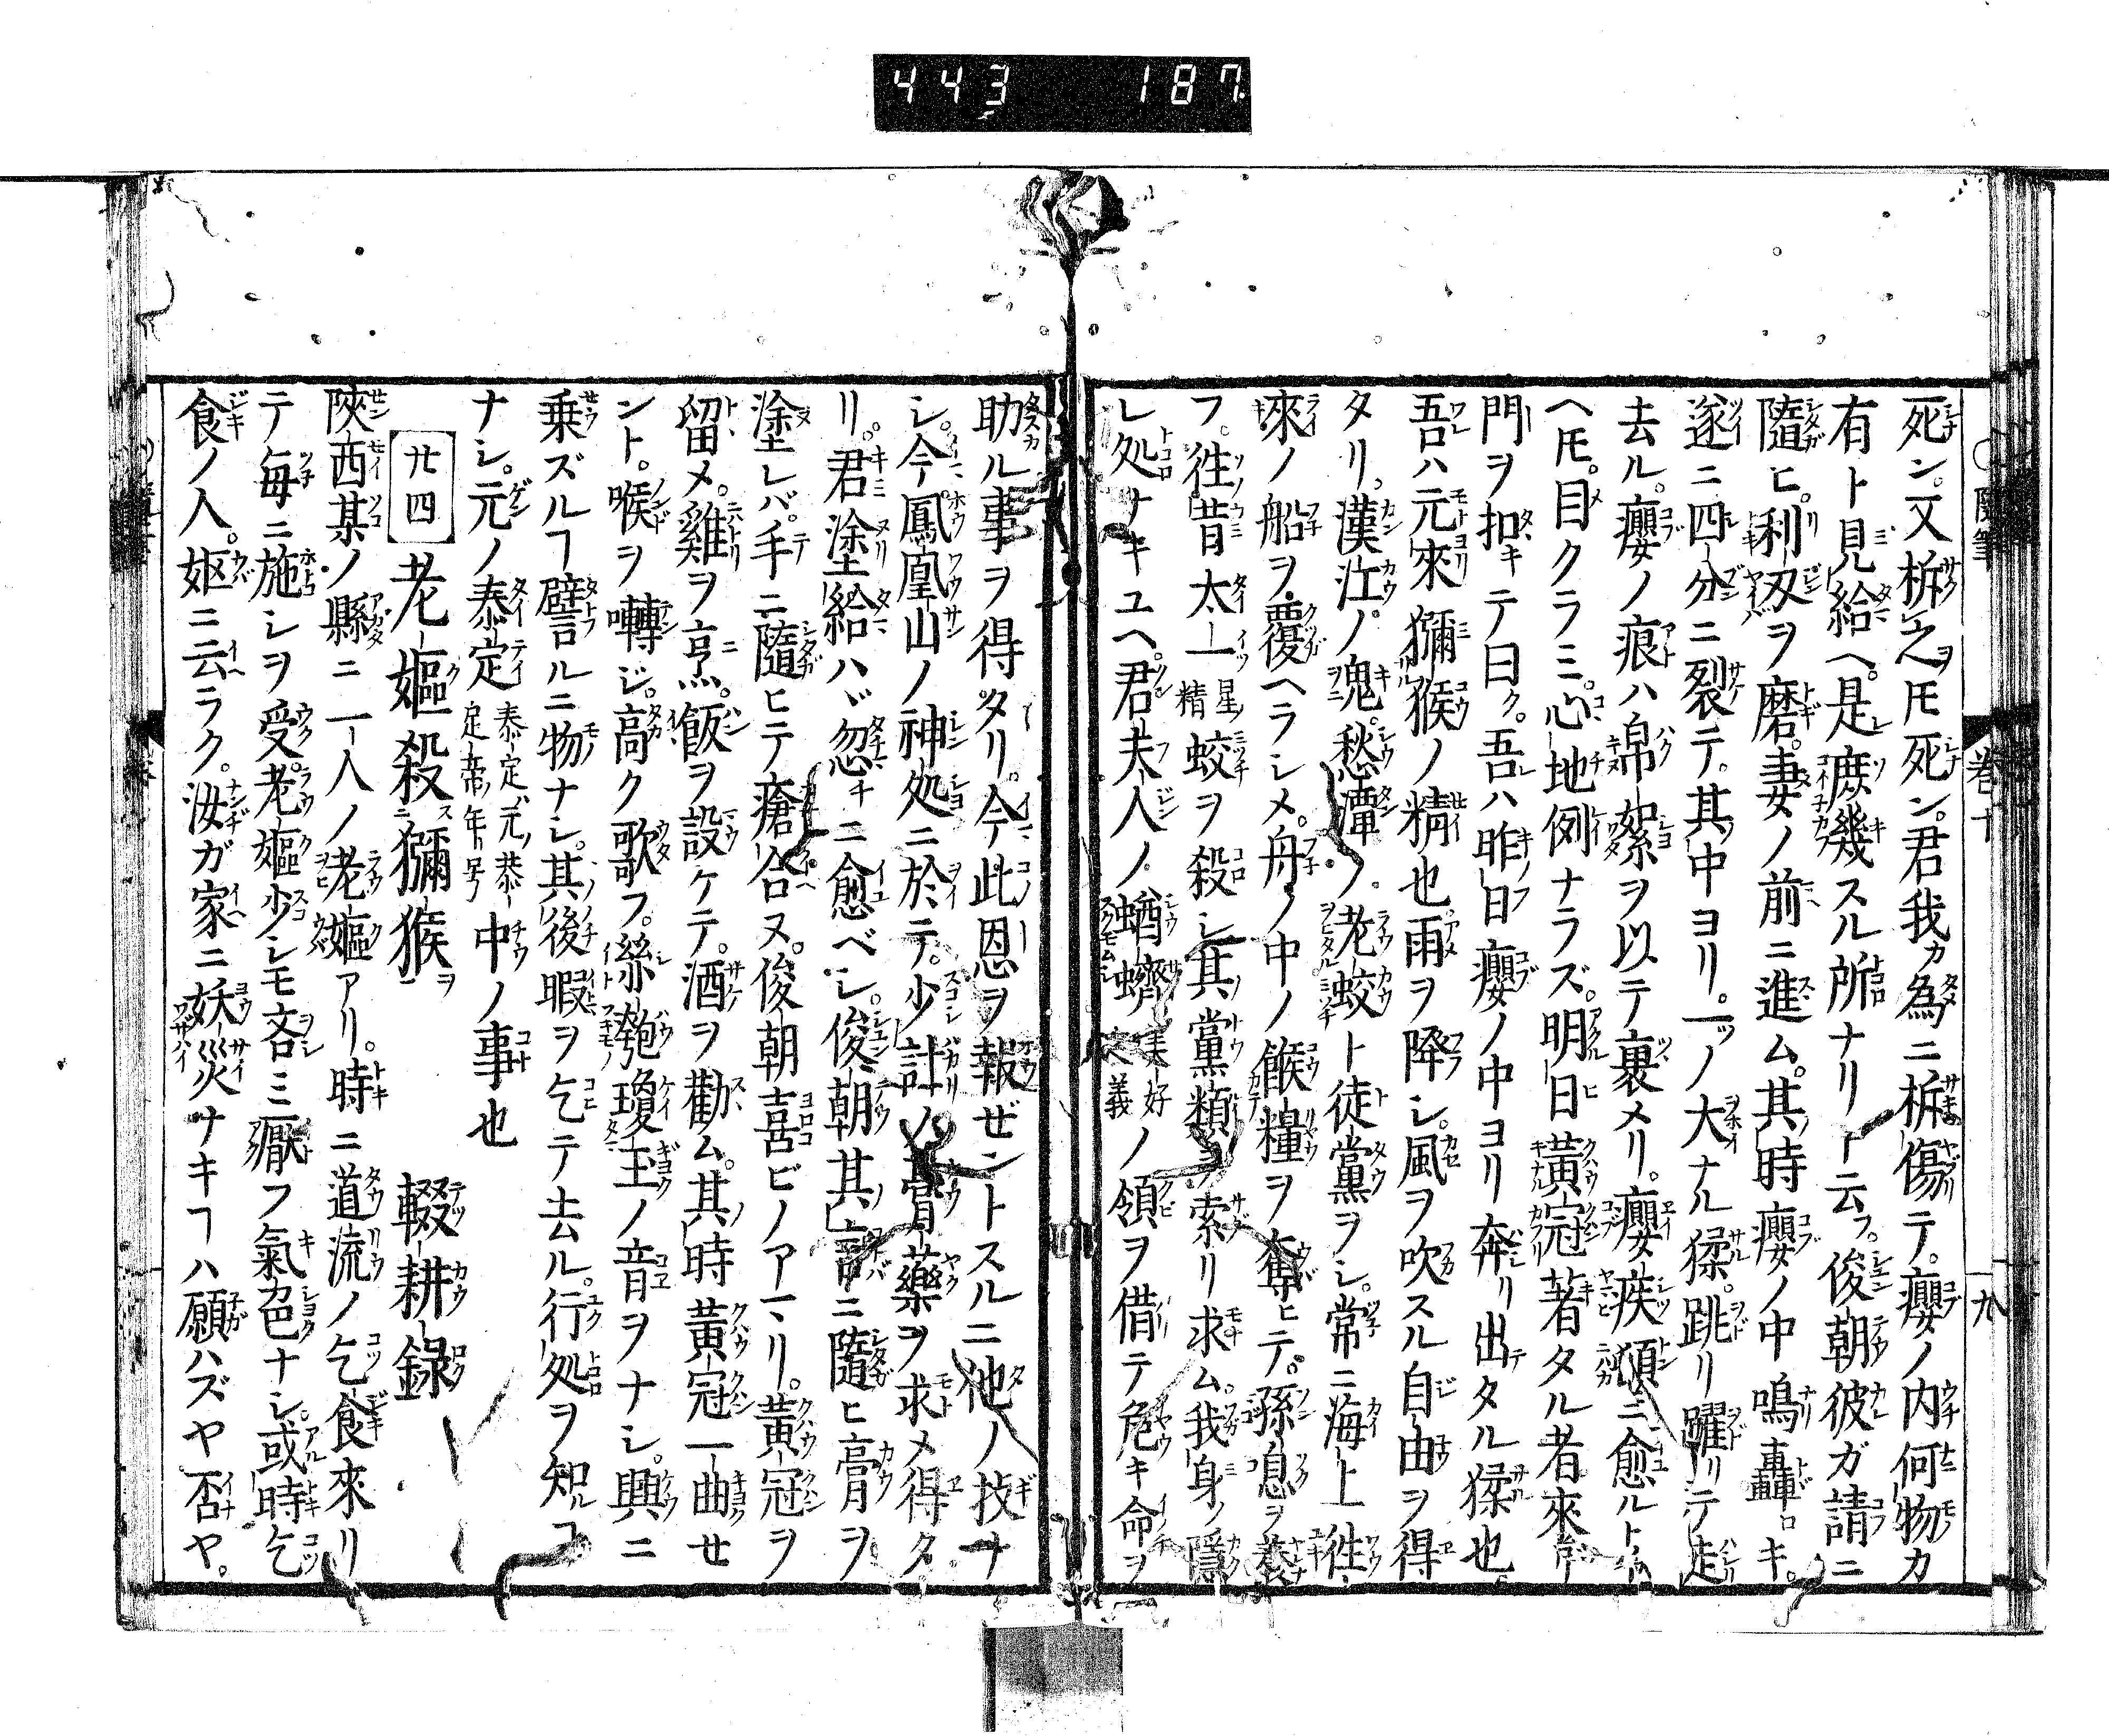 443 187
死ン。又柝之ヲモ死ン。君我カ為ニ柝傷テ。癭ノ内何物カ
有ト見給ヘ。是庶幾スル所ナリト云フ。俊朝彼ガ請ニ
隨ヒ。利刃ヲ磨。妻ノ前ニ進ム。其時癭ノ中鳴轟キ。
遂ニ四分ニ裂テ。其中ヨリ。一ツノ大ナル猱。跳リ躍リテ走
去ル。癭ノ痕ハ帛絮ヲ以テ裹メリ。癭疾頓ニ愈ルト
ヘモ。目クラミ。心地例ナラズ。明日黄冠著タル者來
門ヲ扣キテ曰ク。吾ハ昨日癭ノ中ヨリ奔リ出タル猱也
吾ハ元來獼猴ノ精也。雨ヲ降シ。風ヲ吹スル自由ヲ得
タリ。漢江ノ鬼。愁潭ノ。老蛟ト徒黨ヲシ。常ニ海上往
來ノ船ヲ覆ヘラシメ。舟ノ中ノ餱糧ヲ奪ヒテ。孫息ヲ養
フ。往昔太一星ノ精蛟ヲ殺シ其黨類ヲ索リ求ム。我身ノ隱
レ処ナキユヘ君夫人ノ蝤蠐美好之義ノ領ヲ借テ危キ命ヲ
助ル事ヲ得タリ。今此恩ヲ報ゼントスルニ他ノ技ナ
シ。今鳳凰山ノ神処ニ於テ。少計ノ膏藥ヲ求メ得タ
リ。君塗給ハヾ忽チニ愈ベシ。俊朝其言ニ隨ヒ膏ヲ
塗レバ。手ニ隨ヒテ瘡合ヌ。俊朝喜ビノアマリ。黄冠ヲ
留メ。雞ヲ烹。飯ヲ設ケテ。酒ヲ勸ム。其時黄冠一曲セ
ント。喉ヲ囀ジ。高ク歌フ。絲匏瓊玉ノ音ヲナシ。興ニ
乗ズルヿ譬ルニ物ナシ。其後暇ヲ乞テ去ル。行処ヲ知ルヿ
ナシ。元ノ泰定泰定ハ元ノ泰定帝ノ年号中ノ事也
廿四 老嫗殺ス獼猴ヲ 輟耕録
陜西某ノ縣ニ一人ノ老嫗アリ。時ニ道流ノ乞食來リ
テ毎ニ施シヲ受。老嫗少シモ吝ミ厭フ氣色ナシ。或時乞
食ノ人。妪ニ云ラク。汝ガ家ニ妖災ナキヿハ願ハズヤ否ヤ。
卷十
十九